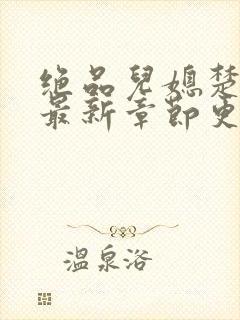 绝品儿媳楚
最新章节更
温泉洛